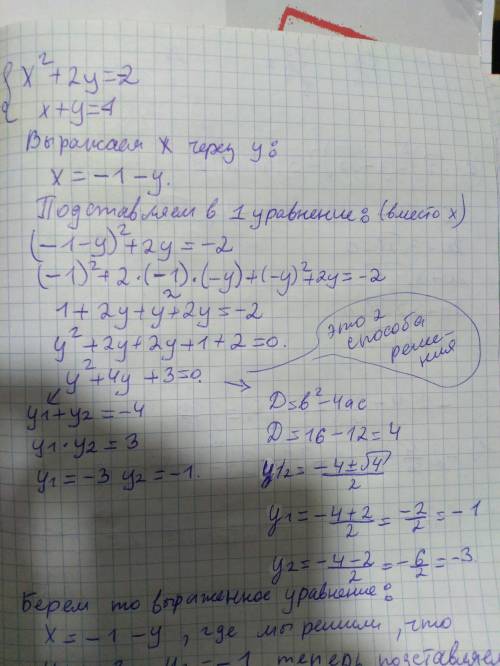 x² + 2y = -2
x + y = -1
Выражаем x через y:
x = -1 - y.
Подставляем в 1 уравнение: (вместо x)
(-1-y)² + 2y = -2
(-1)² + 2·(-1)·(-y) + (-y)² + 2y = -2
1 + 2y + y² + 2y = -2
y² + 2y + 2y + 1 + 2 = 0.
y² + 4y + 3 = 0.
это 2
способа
реше-
ния
y1 + y2 = -4
y1 · y2 = 3
y1 = -3 y2 = -1.
D = b² - 4ac
D = 16 - 12 = 4
y1/2 = (-4 ± √4)/2
y1 = (-4+2)/2 = -2/2 = -1
y2 = (-4-2)/2 = -6/2 = -3.
Берем то выраженное уравнение:
x = -1 - y, где мы решили, что
-1 теперь подставляе